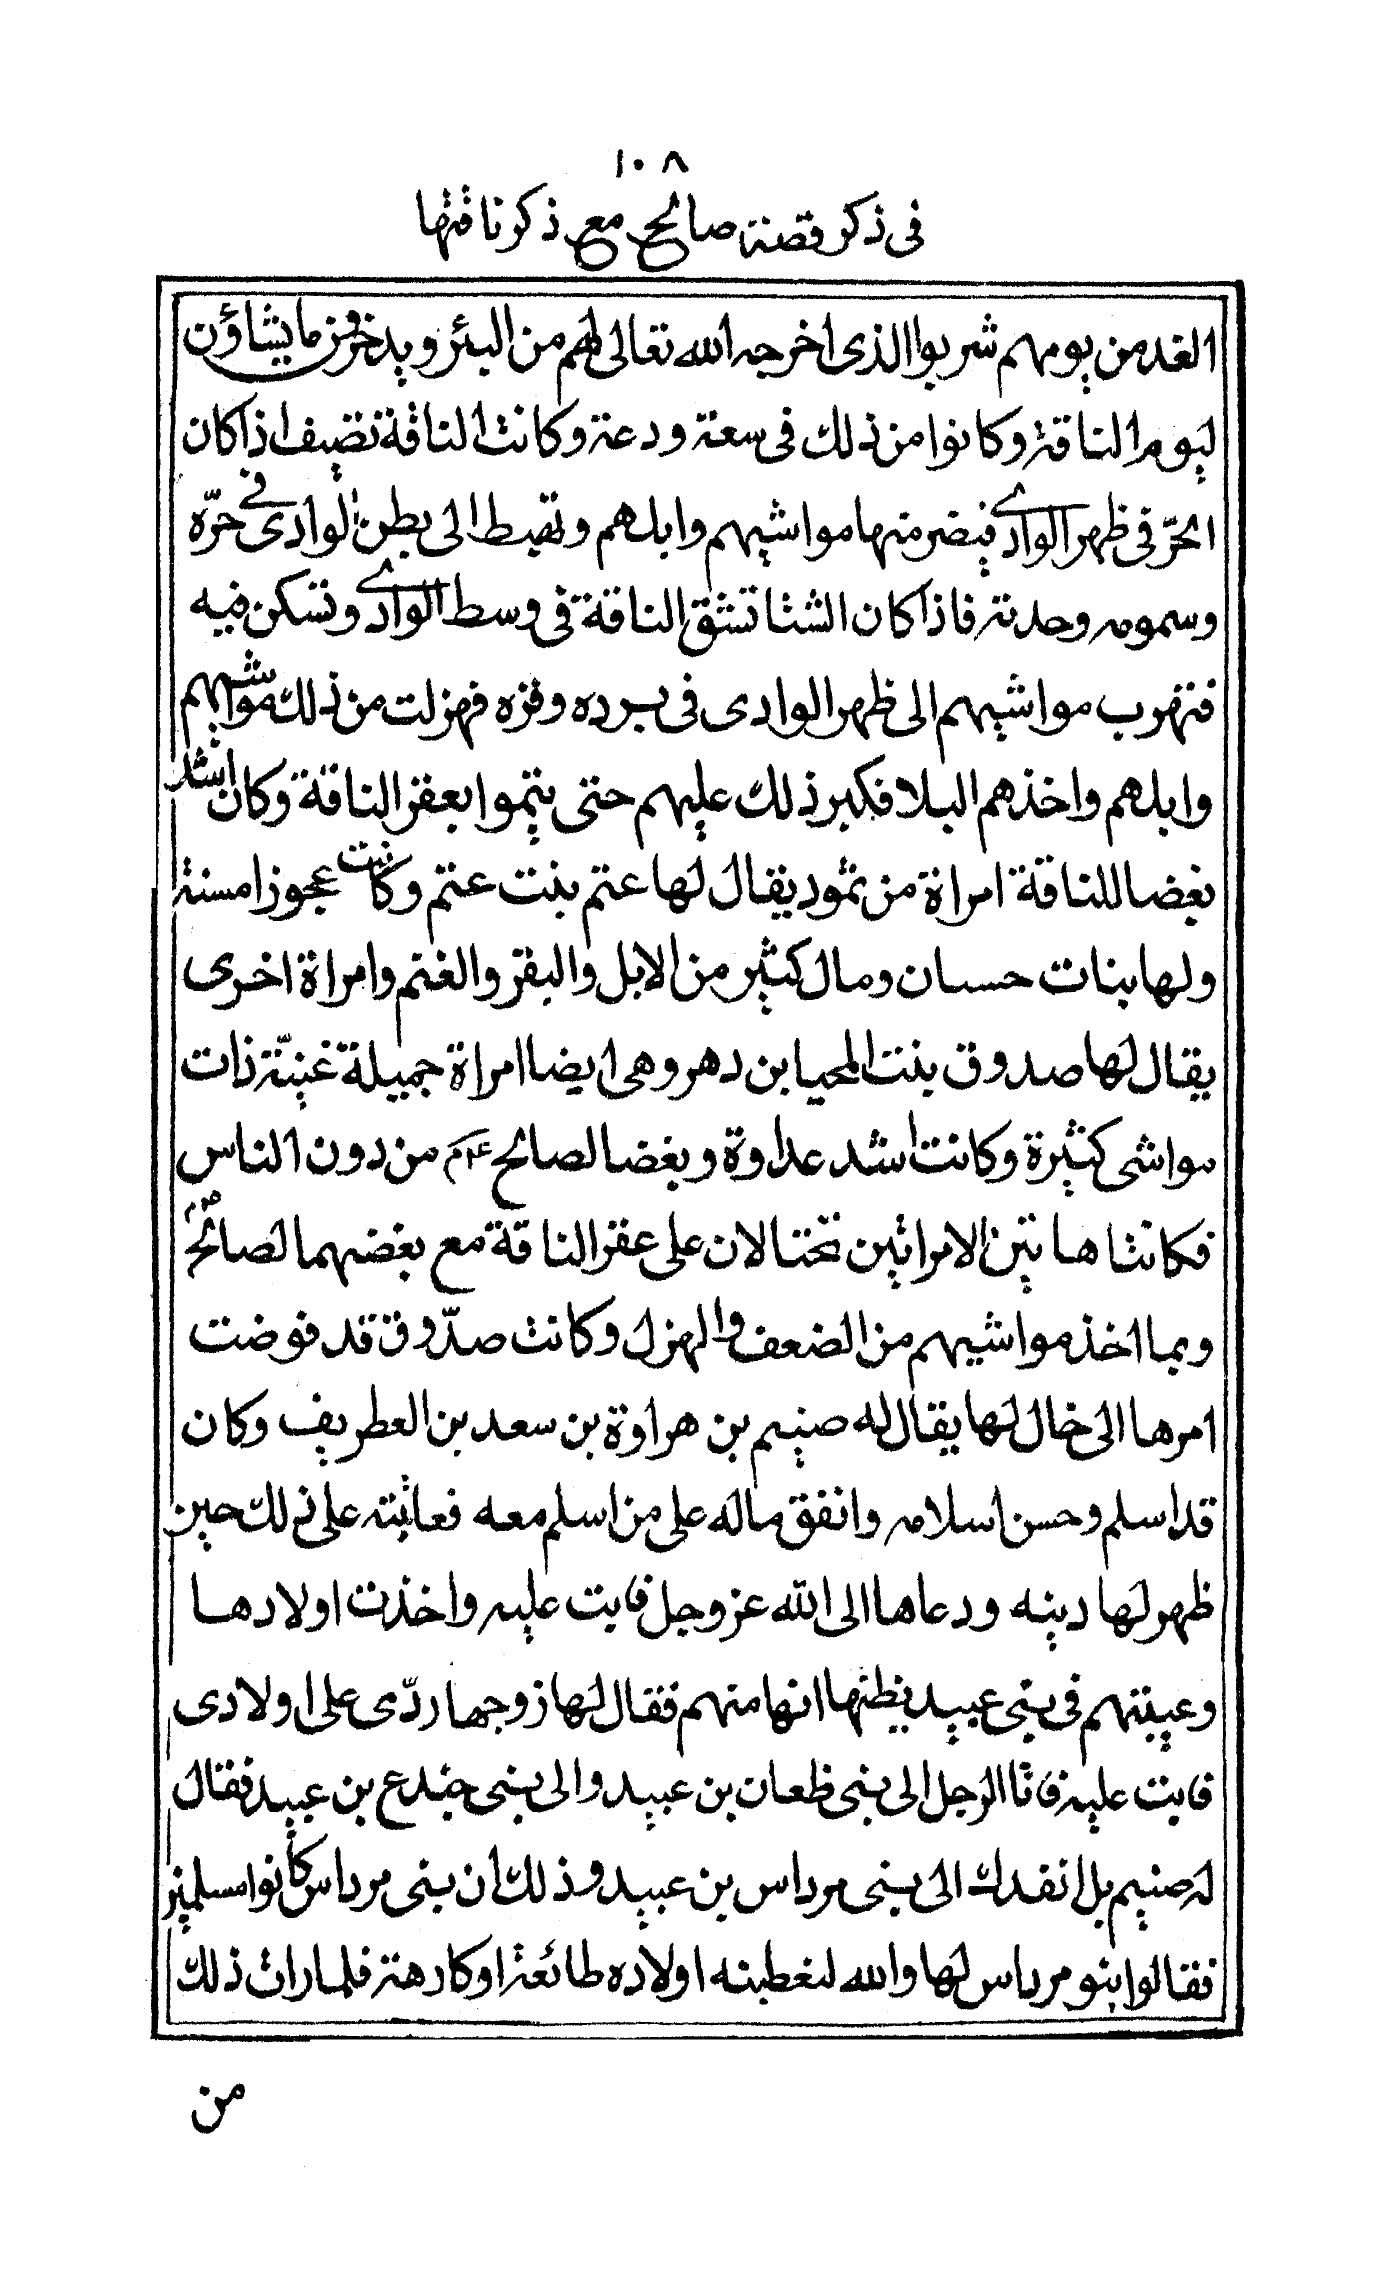 ١٠٨
فى ذكر قصة صالح مع ذكر ناقتها
الغد من يومهم شربوا الذى اخرجه الله تعالى لهم من البئر ويدخرون ما يشاؤن
ليوم الناقة وكانوا من ذلك فى سعة ودعة وكانت الناقة تضيف اذا كان
الحرّ فى ظهر الوادى فيضر منها مواشيهم وابلهم وتهبط الى بطن الوادى فى حرّه
وسمومه وحدته فاذا كان الشتا تشق الناقة فى وسط الوادى وتسكن فيه
فتهرب مواشيهم الى ظهر الوادى فى برده وقره فهزلت من ذلك مواشيهم
وابلهم واخذهم البلا فكبر ذلك عليهم حتى يتموا بعقر الناقة وكان اشد
بغضا للناقة امراة من ثمود يقال لها عتم بنت عتم وكانت عجوزا مسنة
ولها بنات حسان ومال كثير من الابل والبقر والغنم وامراة اخرى
يقال لها صدوق بنت المحيا بن دهر وهى ايضا امراة جميلة غنيّة ذات
مواشى كثيرة وكانت اشد عداوة وبغضا لصالح ع م من دون الناس
فكانتا هاتين الامراتين تحتالان على عقر الناقة مع بغضهما لصالح ع م
وبما اخذ مواشيهم من الضعف والهزل وكانت صدّوق قد فوضت
امرها الى خال لها يقال له صنيم بن هراوة بن سعد بن العطريف وكان
قد اسلم وحسن اسلامه وانفق ماله على من اسلم معه فعاتبته على ذلك حين
ظهر لها دينه ودعاها الى الله عز وجل فابت عليه واخذت اولادها
وعيبتهم فى بنى عبيد بظنها انها منهم فقال لها زوجها ردّى على اولادى
فابت عليه فاتا الرجل الى بنى ظعان بن عبيد والى بنى جندع بن عبيد فقال
له صنيم بل انقدك الى بنى مرداس بن عبيد وذلك ان بنى مرداس كانوا مسلمين
فقالوا بنو مرداس لها والله لنعطينه اولاده طائعة او كارهة فلما رات ذلك
من